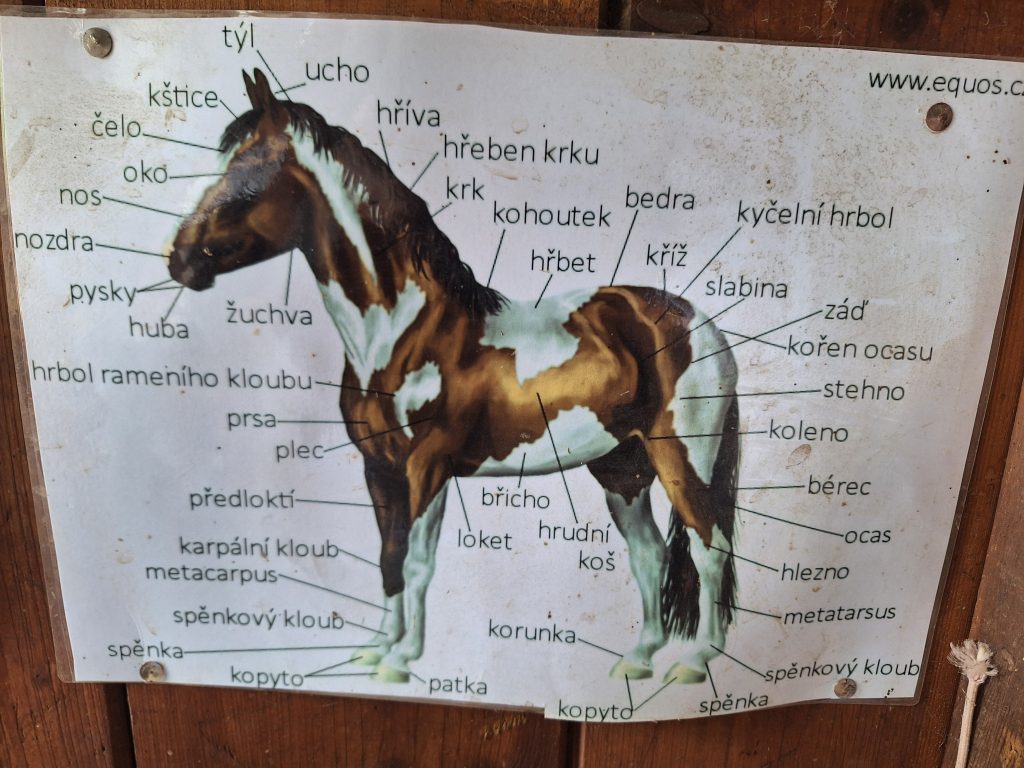 týl
ucho
www.equos.cz
kštice
hříva
čelo
hřeben krku
oko
krk
nos
kohoutek
bedra
kyčelní hrbol
nozdra
hřbet
kříž
pysky
slabina
huba
žuchva
záď
kořen ocasu
hrbol rameního kloubu
stehno
prsa
koleno
plec
předloktí
břicho
bérec
loket
hrudní
koš
ocas
karpální kloub
metacarpus
hlezno
spěnkový kloub
metatarsus
korunka
spěnka
kopyto
patka
spěnkový kloub
spěnka
kopyto